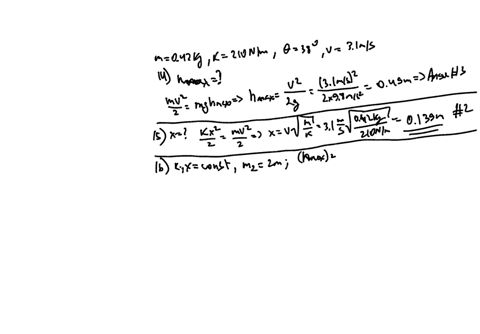 m=0.42kg, K=210N/m, θ=38°, v=3.1m/s
14) hmax=?
mv²/2 = mghmax => hmax = v²/2g = (3.1m/s)²/2×9.8m/s² = 0.49m =>
15) x=? Kx²/2 = mv²/2 => x = v√m/K = 3.1 m/s √0.42kg/210N/m = 0.139m #2
16) K,x=const, m₂=2m; (hmax)₂